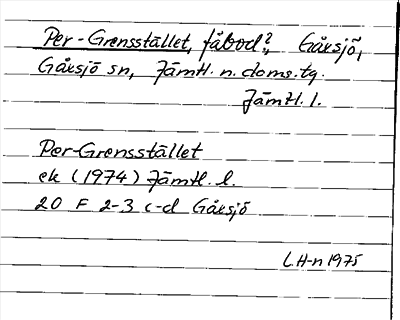 Per-Grensstället, fäbod?, Gåxsjö,
Gåxsjö sn, Jämtl. n. doms. tg.
Jämtl. l.
Per-Grensstället
ek (1974) Jämtl. l.
20 F 2-3 c-d Gåxsjö
LH-n 1975